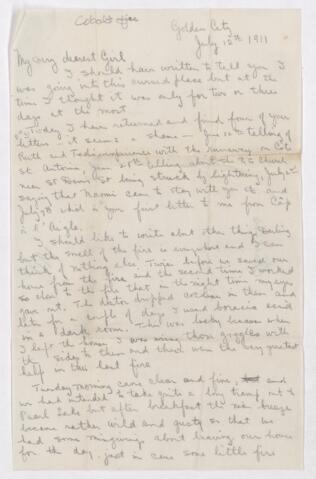 Cobalt fire
Golden City
July 15th 1911
My very dearest Girl
I should have written to tell you I
was going into this cursed place but at the
time I thought it was only for two or three
days at the most
Today I have returned and find four of your
letters - it seems a shame - June 10th telling of
Ruth and Ted's experience with the runaway on Cote
St Antoine, June 20th telling about the R.C. Church
near St Denis St being struck by lightning, July 2nd
saying that Naomi came to stay with you etc and
July 8th which is your first letter to me from Cap
à l'Aigle.
I should like to write about other things Darling
but the smell of the fire is everywhere and I can
think of nothing else. Twice before we saved our
house from the fire and the second time I worked
so close to the fire that in the night time my eyes
gave out. The doctor dropped cocaine in them and
later for a couple of days I used boracic acid
in a dark room. This was lucky because when
I left the house I was wearing those goggles with
the sides to them and these were the very greatest
help in this last fire
Tuesday morning came clear and fine, and
we had intended to take quite a long tramp, out to
Pearl Lake but after breakfast the nice breeze
became rather wild and gusty so that we
had some misgivings about leaving our house
for the day, just in case some little fire